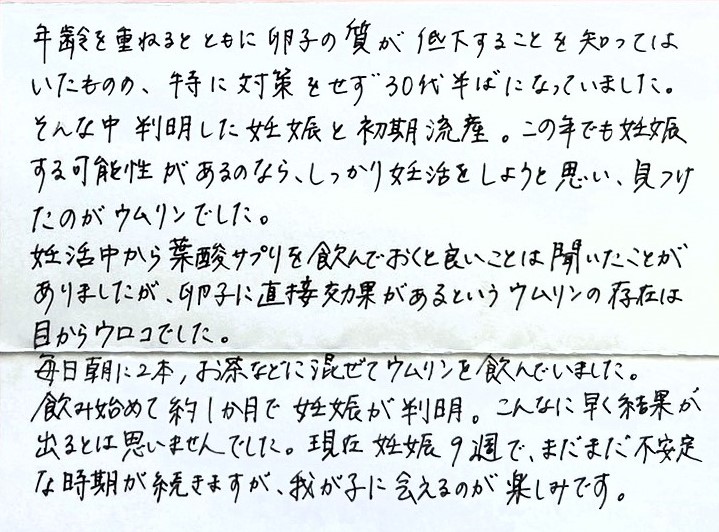 年齢を重ねるとともに卵子の質が低下することを知っては
いたものの、特に対策をせず30代半ばになっていました。
そんな中判明した妊娠と初期流産。この年でも妊娠
する可能性があるのなら、しっかり妊活をしようと思い、見つけ
たのがウムリンでした。
妊活中から葉酸サプリを飲んでおくと良いことは聞いたことが
ありましたが、卵子に直接効果があるというウムリンの存在は
目からウロコでした。
毎日朝に2本,お茶などに混ぜてウムリンを飲んでいました。
飲み始めて約1か月で妊娠が判明。こんなに早く結果が
出るとは思いませんでした。現在妊娠9週で、まだまだ不安定
な時期が続きますが、我が子に会えるのが楽しみです。